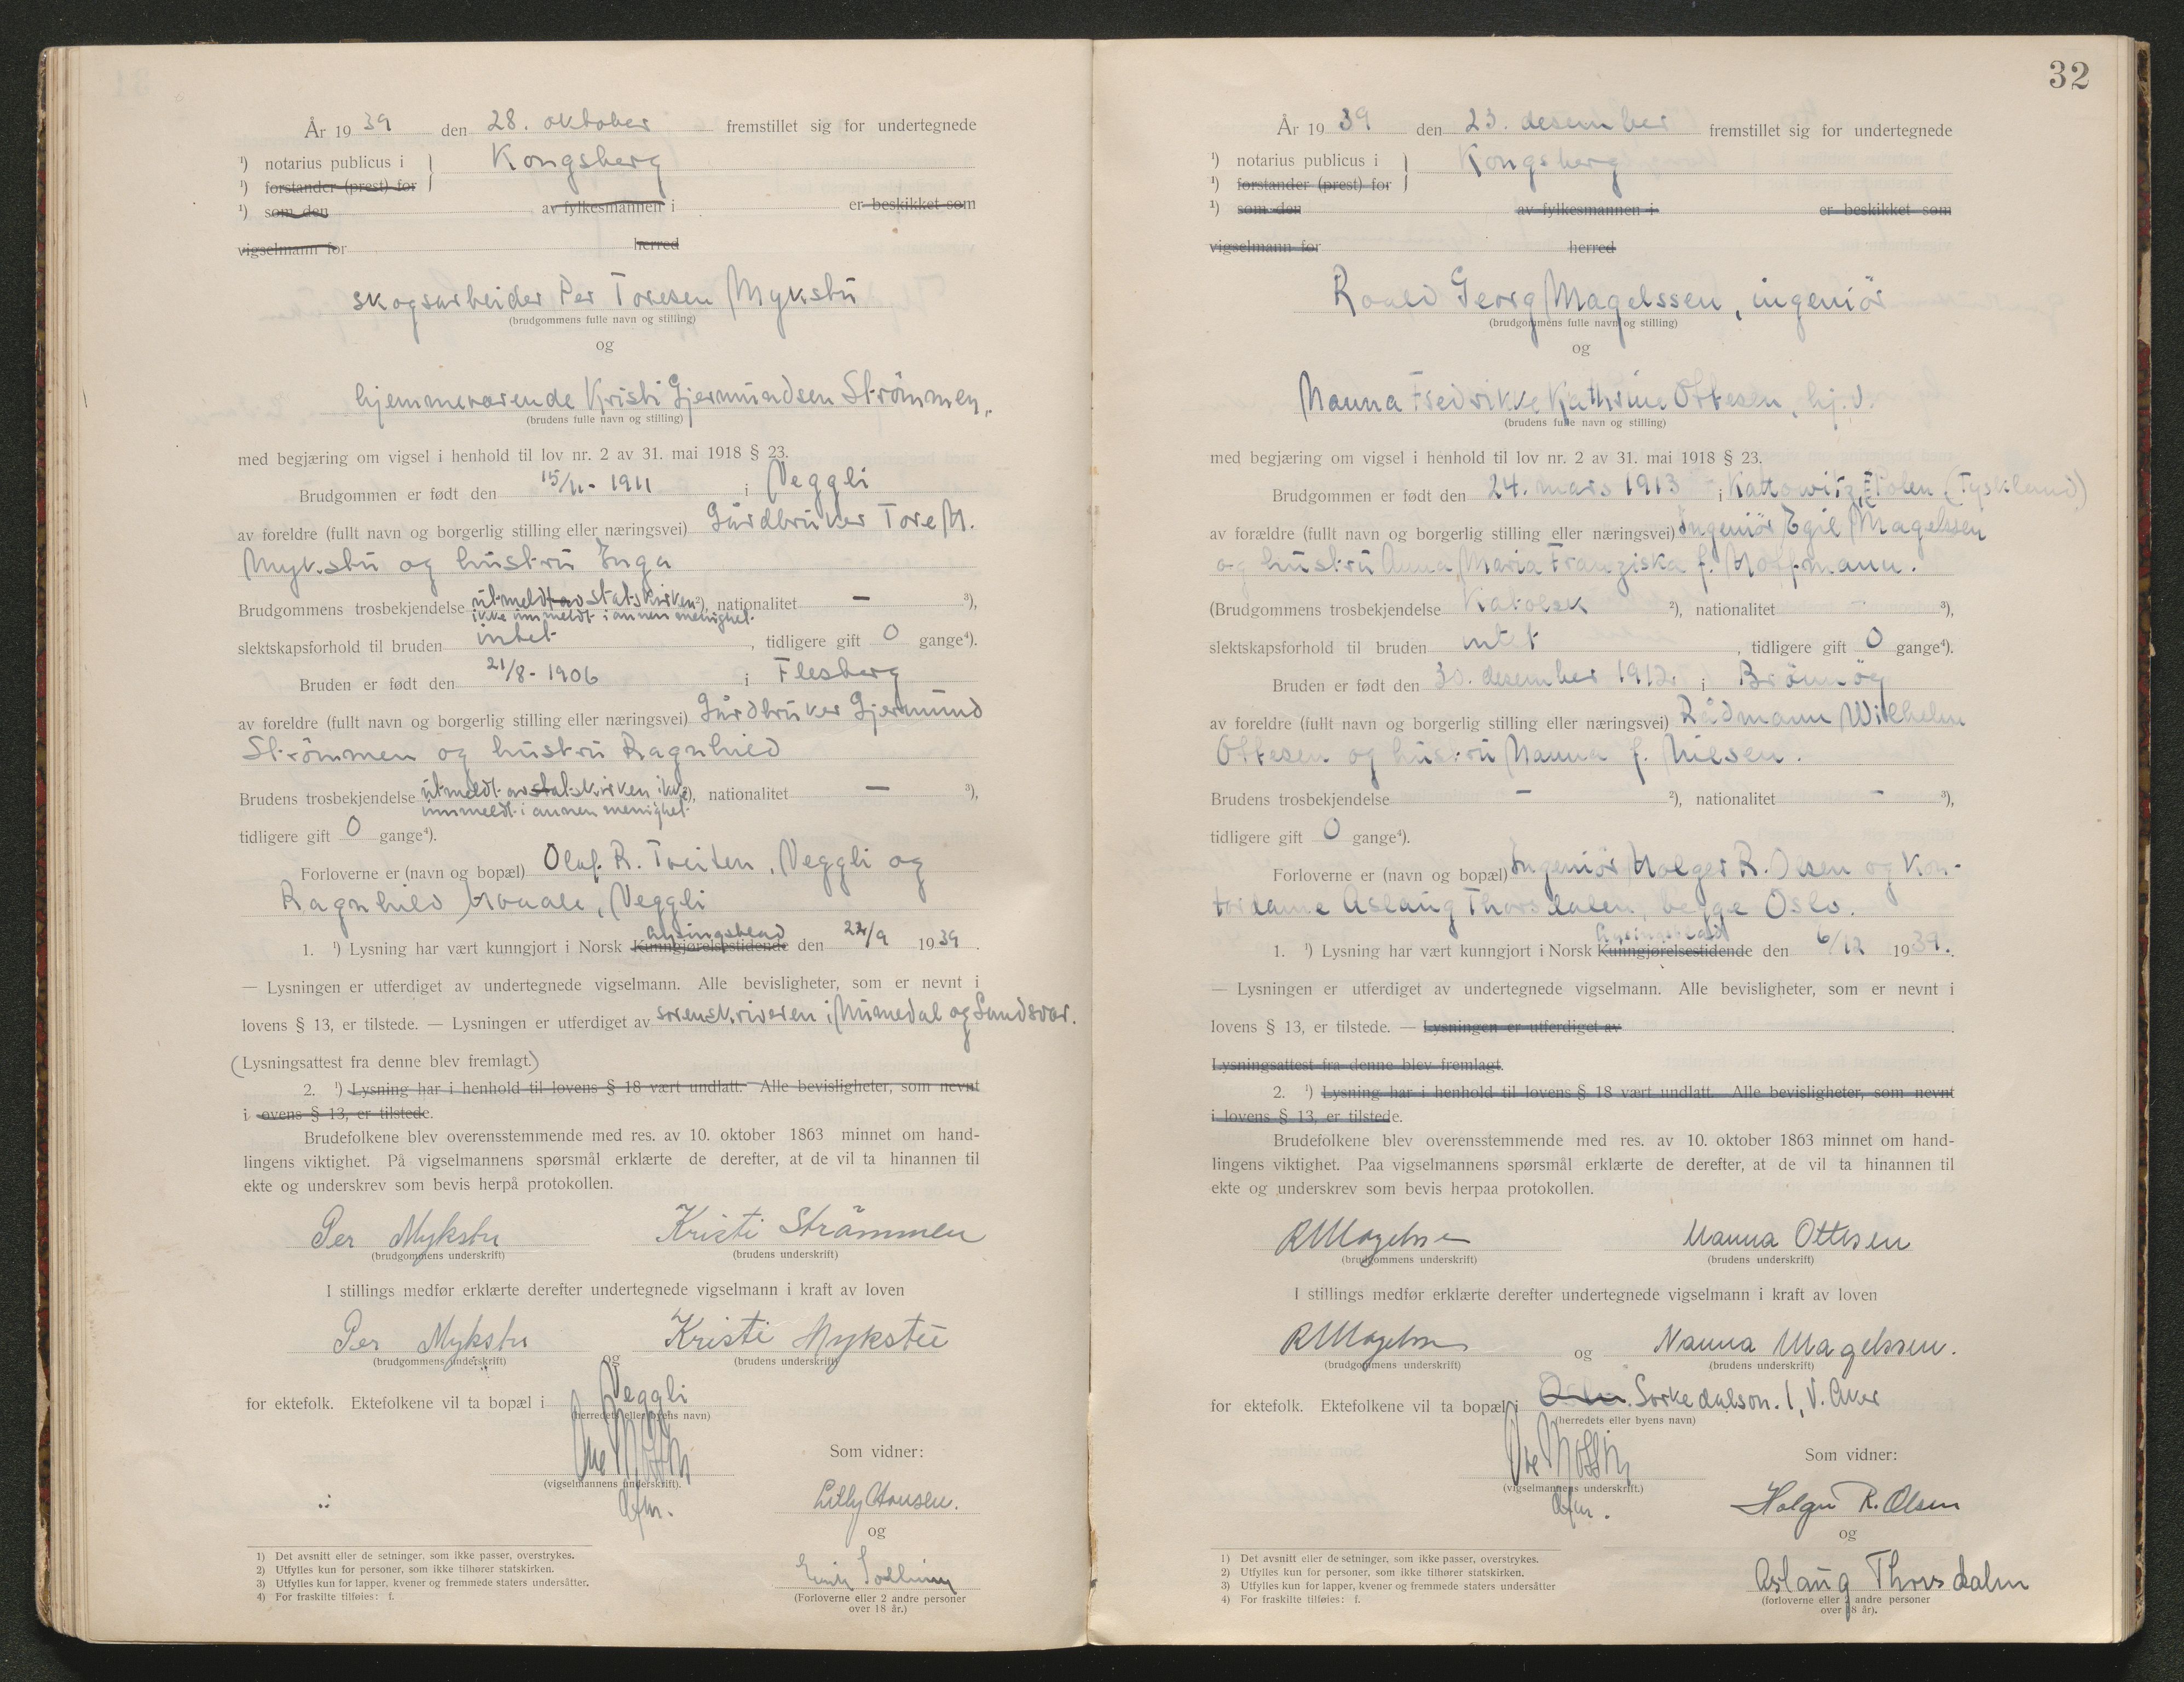 År 19 39 den 28. oktober fremstillet sig for undertegnede
¹) notarius publicus i } Kongsberg
¹) forstander (prest) for
¹) som den av fylkesmannen i er beskikket som
vigselmann for herred
skogsarbeider Per Toresen Mykstu
(brudgommens fulle navn og stilling)
og
hjemmeværende Kristi Gjermundsen Strömmen,
(brudens fulle navn og stilling)
med begjæring om vigsel i henhold til lov nr. 2 av 31. mai 1918 § 23.
Brudgommen er født den 15/11- 1911 i Veggli
av foreldre (fullt navn og borgerlig stilling eller næringsvei) Gårdbruker Tore N.
Mykstu og hustru Inga
Brudgommens trosbekjendelse utmeldt av statskirken ²), nationalitet — ³),
ikke innmeldt i annen menighet.
slektskapsforhold til bruden intet , tidligere gift 0 gange⁴).
Bruden er født den 21/8- 1906 i Flesberg
av foreldre (fullt navn og borgerlig stilling eller næringsvei) Gårdbruker Gjermund
Strömmen og hustru Ragnhild
Brudens trosbekjendelse utmeldt av statskirken ikke ²), nationalitet — ³),
innmeldt i annen menighet
tidligere gift 0 gange⁴).
Forloverne er (navn og bopæl) Olaf R. Treiten, Veggli og
Ragnhild Kvaale, Veggli
lysingsblad
1. ¹) Lysning har vært kunngjort i Norsk Kunngjørelsestidende den 22/9 1939.
— Lysningen er utferdiget av undertegnede vigselmann. Alle bevisligheter, som er nevnt i
lovens § 13, er tilstede. — Lysningen er utferdiget av sorenskriveren i Numedal og Sandsvær.
(Lysningsattest fra denne blev fremlagt.)
2. ¹) Lysning har i henhold til lovens § 18 vært undlatt. Alle bevisligheter, som nevnt
i ovens § 13, er tilstede.
Brudefolkene blev overensstemmende med res. av 10. oktober 1863 minnet om hand-
lingens viktighet. På vigselmannens spørsmål erklærte de derefter, at de vil ta hinannen til
ekte og underskrev som bevis herpå protokollen.
Per Mykstu Kristi Strömmen
(brudgommens underskrift) (brudens underskrift)
I stillings medfør erklærte derefter undertegnede vigselmann i kraft av loven
Per Mykstu og Kristi Mykstu
(brudgommens underskrift) (brudens underskrift)
for ektefolk. Ektefolkene vil ta bopæl i Veggli
(herredets eller byens navn)
Som vidner:
(vigselmannens underskrift).
Lilly Hansen.
og
(Forloverne eller 2 andre personer
over 18 år.)
1) Det avsnitt eller de setninger, som ikke passer, overstrykes.
2) Utfylles kun for personer, som ikke tilhører statskirken.
3) Utfylles kun for lapper, kvener og fremmede staters undersåtter.
4) For fraskilte tilføies: f.
32
År 19 39 den 23. desember fremstillet sig for undertegnede
¹) notarius publicus i } Kongsberg
¹) forstander (prest) for
¹) som den av fylkesmannen i er beskikket som
vigselmann for herred
Roald Georg Magelssen, ingeniör
(brudgommens fulle navn og stilling)
og
Nanna Fredrikke Kathrine Ottesen, hj.v.
(brudens fulle navn og stilling)
med begjæring om vigsel i henhold til lov nr. 2 av 31. mai 1918 § 23.
Brudgommen er født den 24. mars 1913 i Kattowitz, Polen (Tyskland)
av foreldre (fullt navn og borgerlig stilling eller næringsvei) Ingeniör Egil Magelssen
og hustru Anna Maria Franziska f. Hoffmann.
(Brudgommens trosbekjendelse Katolsk ²), nationalitet - ³),
slektskapsforhold til bruden intet , tidligere gift 0 gange⁴).
Bruden er født den 30. desember 1912 i Brönnöy
av foreldre (fullt navn og borgerlig stilling eller næringsvei) Rådmann Wilhelm
Ottesen og hustru Nanna f. Nilsen.
Brudens trosbekjendelse - ²), nationalitet - ³),
tidligere gift 0 gange⁴).
Forloverne er (navn og bopæl) Ingeniör Holger R. Olsen og kon-
tordame Aslaug Thorsdalen, begge Oslo.
lysingsblad
1. ¹) Lysning har vært kunngjort i Norsk Kunngjørelsestidende den 6/12 1939.
— Lysningen er utferdiget av undertegnede vigselmann. Alle bevisligheter, som er nevnt i
lovens § 13, er tilstede. — Lysningen er utferdiget av .
Lysningsattest fra denne blev fremlagt.
2. ¹) Lysning har i henhold til lovens § 18 vært undlatt. Alle bevisligheter, som nevnt
i lovens § 13, er tilstede.
Brudefolkene blev overensstemmende med res. av 10. oktober 1863 minnet om hand-
lingens viktighet. Paa vigselmannens spørsmål erklærte de derefter, at de vil ta hinannen til
ekte og underskrev som bevis herpaa protokollen.
RMagelssen Nanna Ottesen
(brudgommens underskrift) (brudens underskrift)
I stillings medfør erklærte derefter undertegnede vigselmann i kraft av loven
RMagelssen og Nanna Magelssen.
(brudgommens underskrift) (brudens underskrift)
for ektefolk. Ektefolkene vil ta bopæl i Oslo. Sørkedalsvn. 1, V. Aker
(herredets eller byens navn)
Som vidner:
(vigselmannens underskrift.)
Holger R. Olsen
og
Aslaug Thorsdalen
(forloverne eller 2 andre personer
over 18 år).
1) Det avsnitt eller de setninger, som ikke passer, overstrykes.
2) Utfylles kun for personer, som ikke tilhører statskirken.
3) Utfylles kun for lapper, kvener og fremmede staters undersåtter
4) For fraskilte tilføies: f.